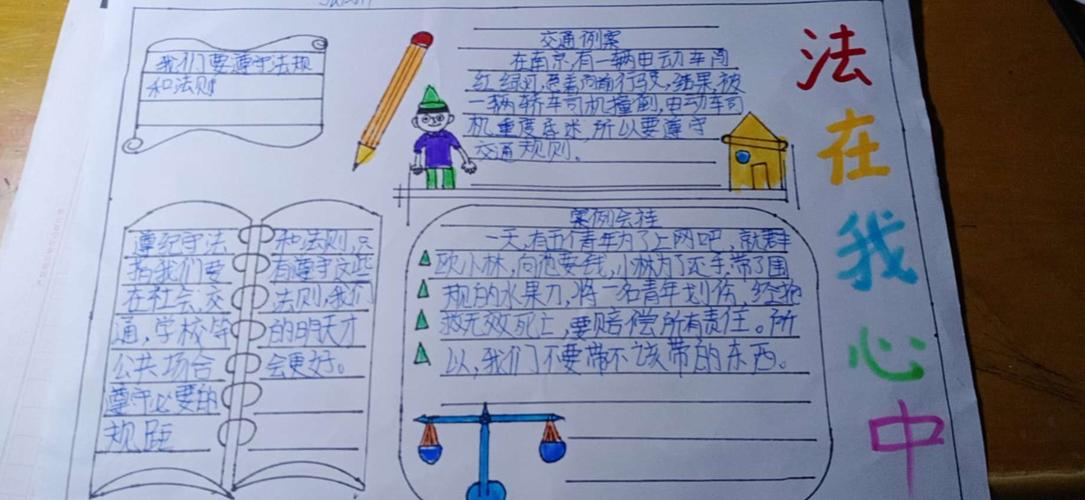 我们要遵守法规
和法则
交通例案
在南京,有一辆电动车闯
红绿灯,
一辆轿车司机撞倒,电动车司
机重度昏迷,所以要遵守
交通规则。
法
在
我
心
中
遵纪守法
指我们要
在社会,交
通,学校等
公共场合
遵守必要的
规距
和法则,只
有遵守这些
法则,我们
的明天才
会更好。
案例会挂
一天,有五个青年为了上网吧,就群
欧小林,向他要钱,小林为了还手,带了围
规的水果刀,将一名青年划伤,经抢
救无效死亡,要赔偿所有责任。所
以,我们不要带不该带的东西。